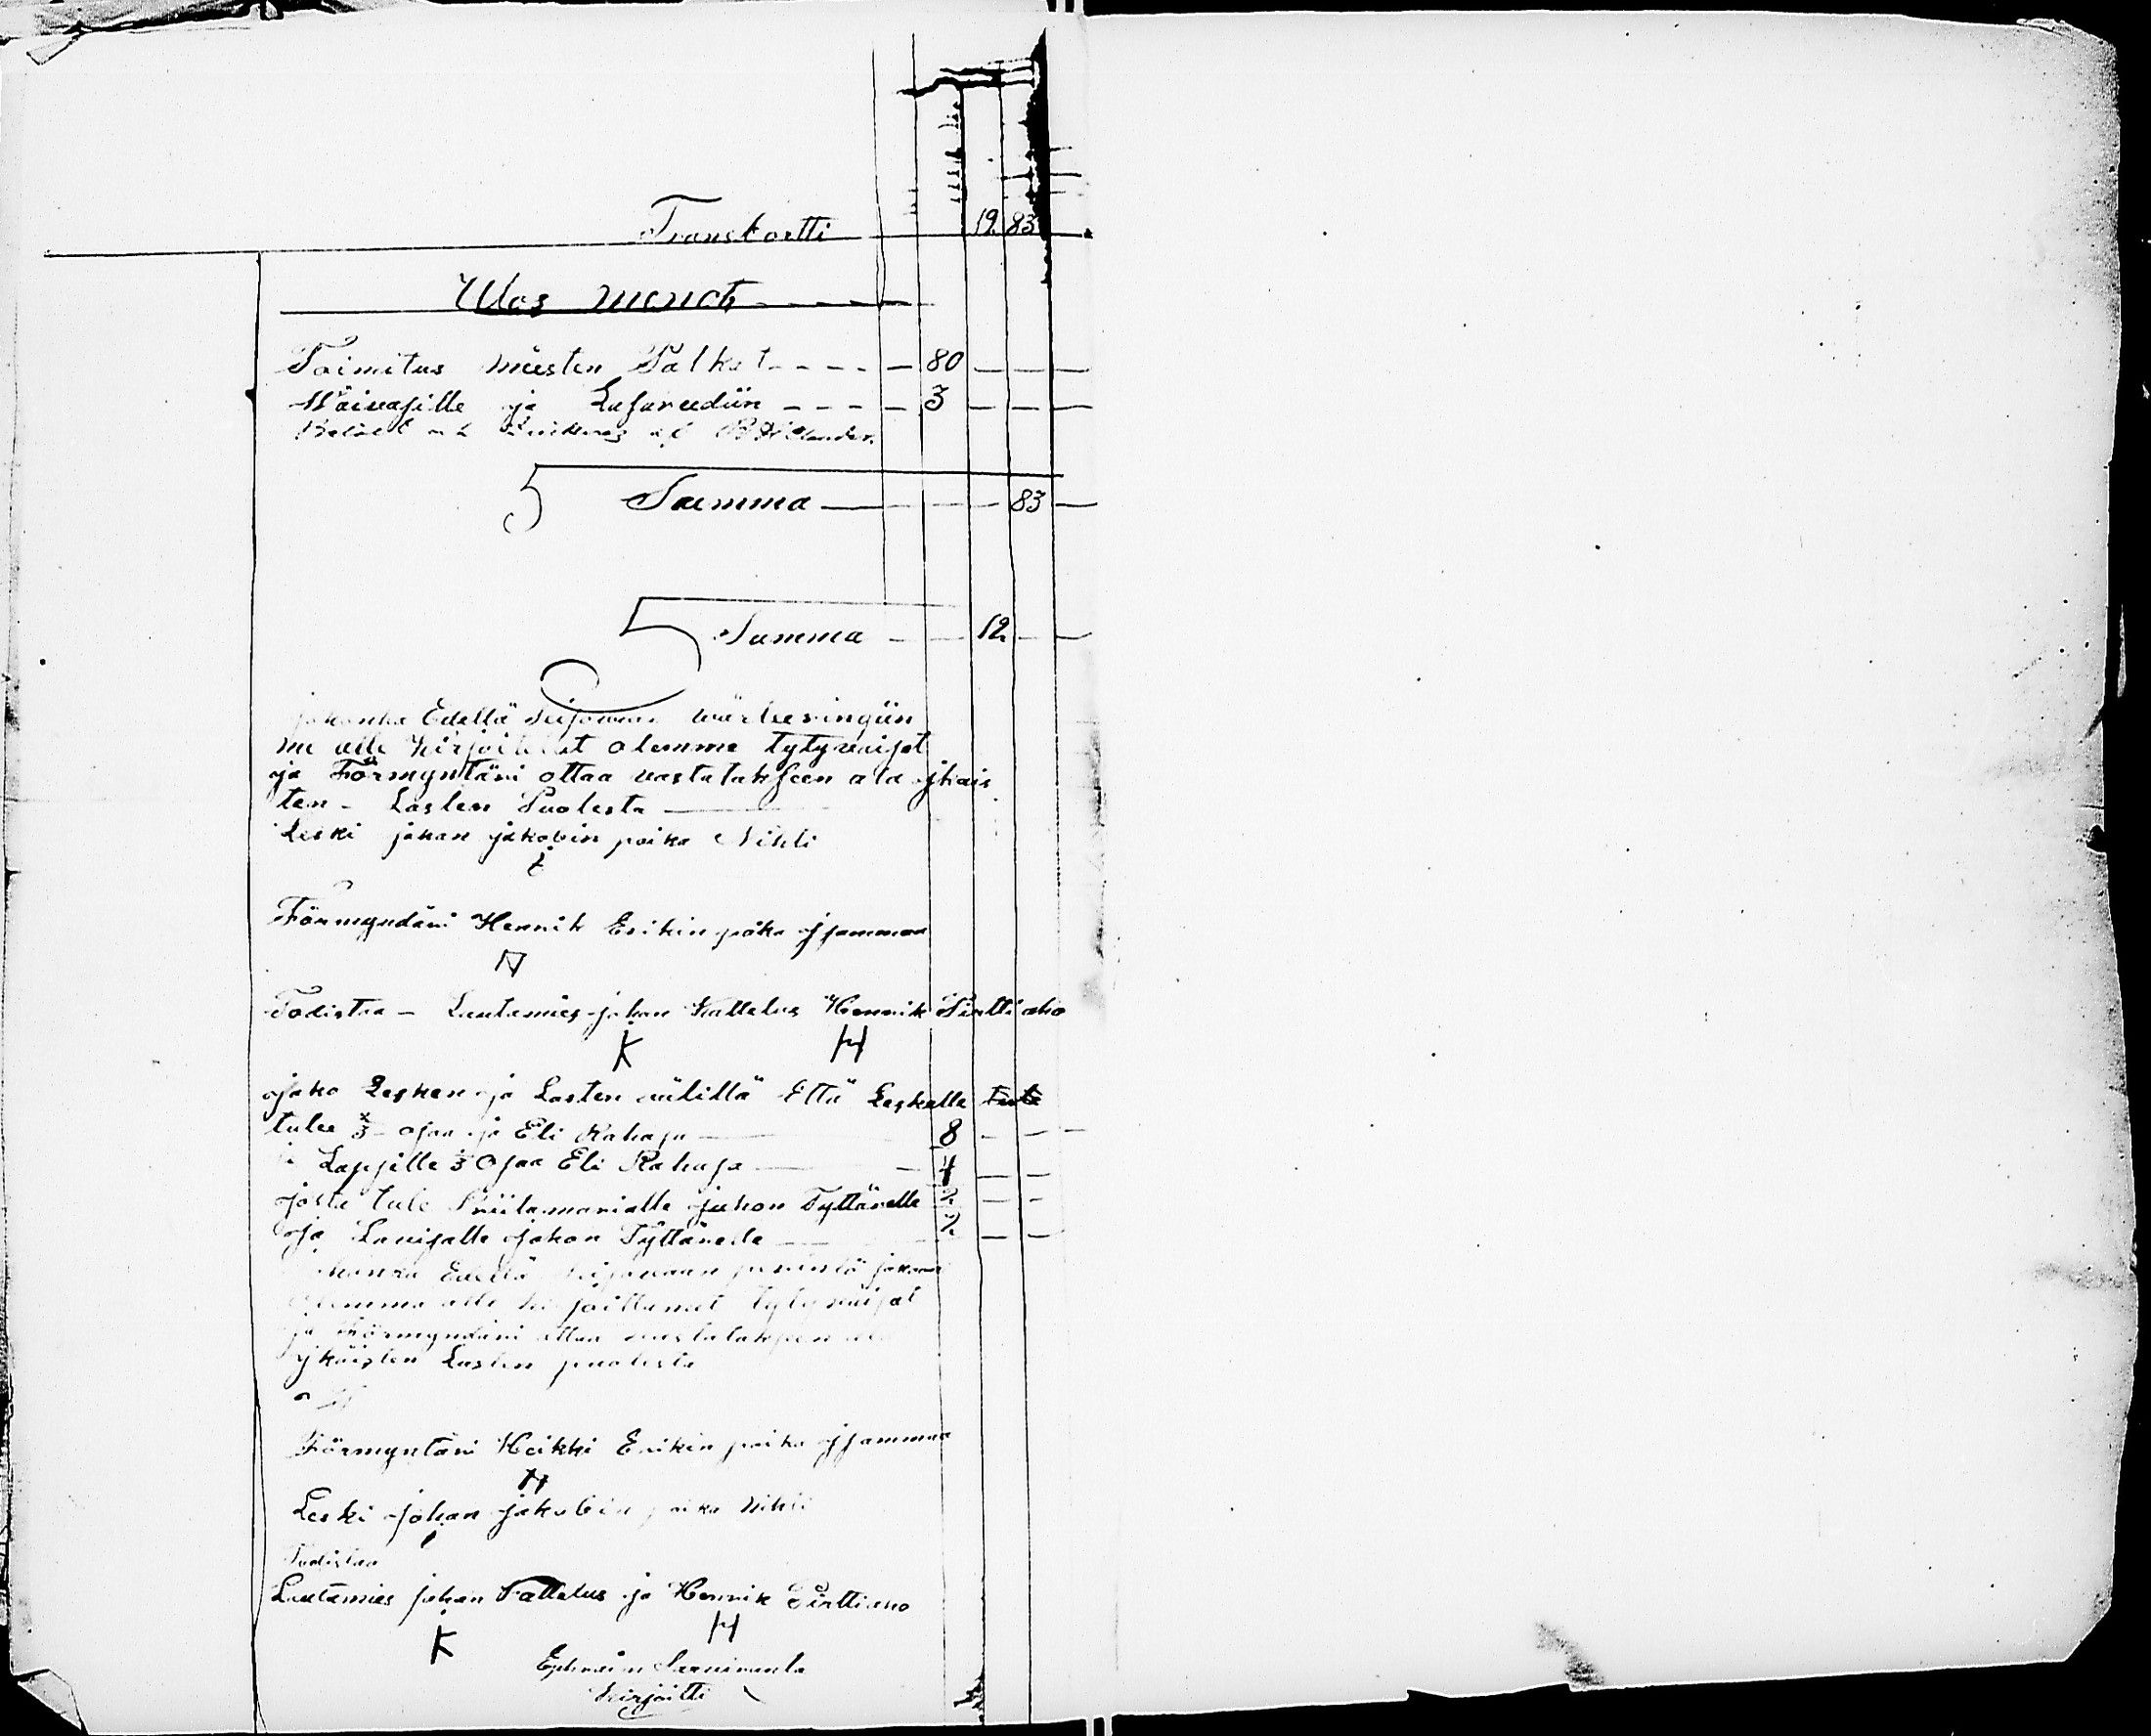 Transkortti 19. 83
Ulos menot
Toimitus miesten Palkat - - - - 80
Wäivasille ja Lasareediin - - - - 3
Summa 83
Summa 12
johonka Edellä seisowan wärteeringiin
me alle kirjoitetut olemme tytywäiset
ja Förmyntäri ottaa vastatakseen ala jkäis
ten - Lasten Puolesta
Leski johan jakobin poika Nikli
Förmyndäri Hennik Erikin poika
Todistaa - Lautamies johan Kattelus Hennik Pirttiaho
K H
jako Lesken ja Lasten välillä Että Leskelle tule
tulee 2/3 osaa ja Eli Rahasa 8
Lapsille 1/3 Osaa Eli Rahasa 4
josta tule Priitamarialle juhon Tyttärelle 2
ja Lovisalle johon Tyttärelle 2
Edellä seisovaan perintö jakoon
olemma alle kirjoittanet tytywäiset
ja Förmyndäri ottaa vastatakseen ala
jkäisten Lasten puolesta
Förmyntäri Heikki Erikin poika
H
Leski johan jakobin poika Nikli
Todistaa
Lautamies johan Kattelus ja Hennik Pirttiaho
K H
Ephraim
kirjoitti